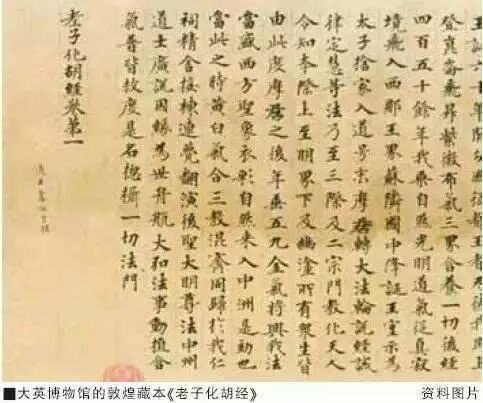 登真飛昇紫微布氣三界含養一切後經
四百五十餘年我乘自然光明道氣從真寂
境飛入西那王界蘇隣國中降誕王室示為
太子捨家入道号末摩尼轉大法輪說經誡
律定慧等法乃至三際及二宗門教化天人
令知本際上至明界下及幽塗所有衆生皆
由此度摩尼之後年垂五九金氣將興我法
當盛西方聖象衣彩自然來入中洲是効也
當此之時黄白氣合三教混齊同歸於我仁
祠精舍接棟連甍翻演後聖大明尊法中州
道士廣說因緣為世舟航大弘法事動植含
氣普皆救度是名總攝一切法門
老子化胡經卷第一
■大英博物馆的敦煌藏本《老子化胡经》 资料图片